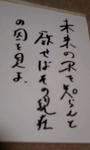 未来の果を知らんと
欲せばその現在
の因を見よ